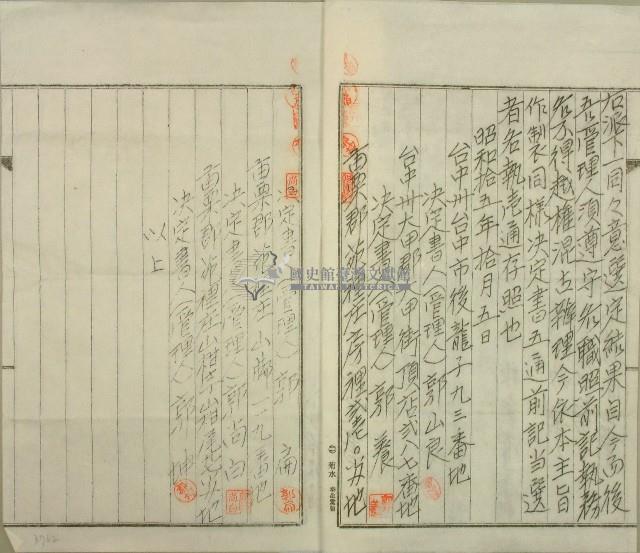 右派下一同々意選定結果自今而後
吾管理人須遵守各職照前記執務
各不得越權混亂辦理今依本主旨
作製同樣決定書五通前記当選
者各執壱通存照也
昭和拾五年拾月五日
台中州台中市後龍子九三番地
決定書人(管理人)郭山良
台中州大甲郡大甲街頂店弍八七番地
決定書人(管理人)郭養
苗栗郡苑裡庄房裡
決定書人(管理人)郭
苗栗郡苑裡庄山脚一一九番地
決定書人(管理人)郭尚白
苗栗郡苑裡庄山柑
決定書人(管理人)郭坤
以上
菊水
國史館臺灣文獻館
TAIWAN HISTORICA